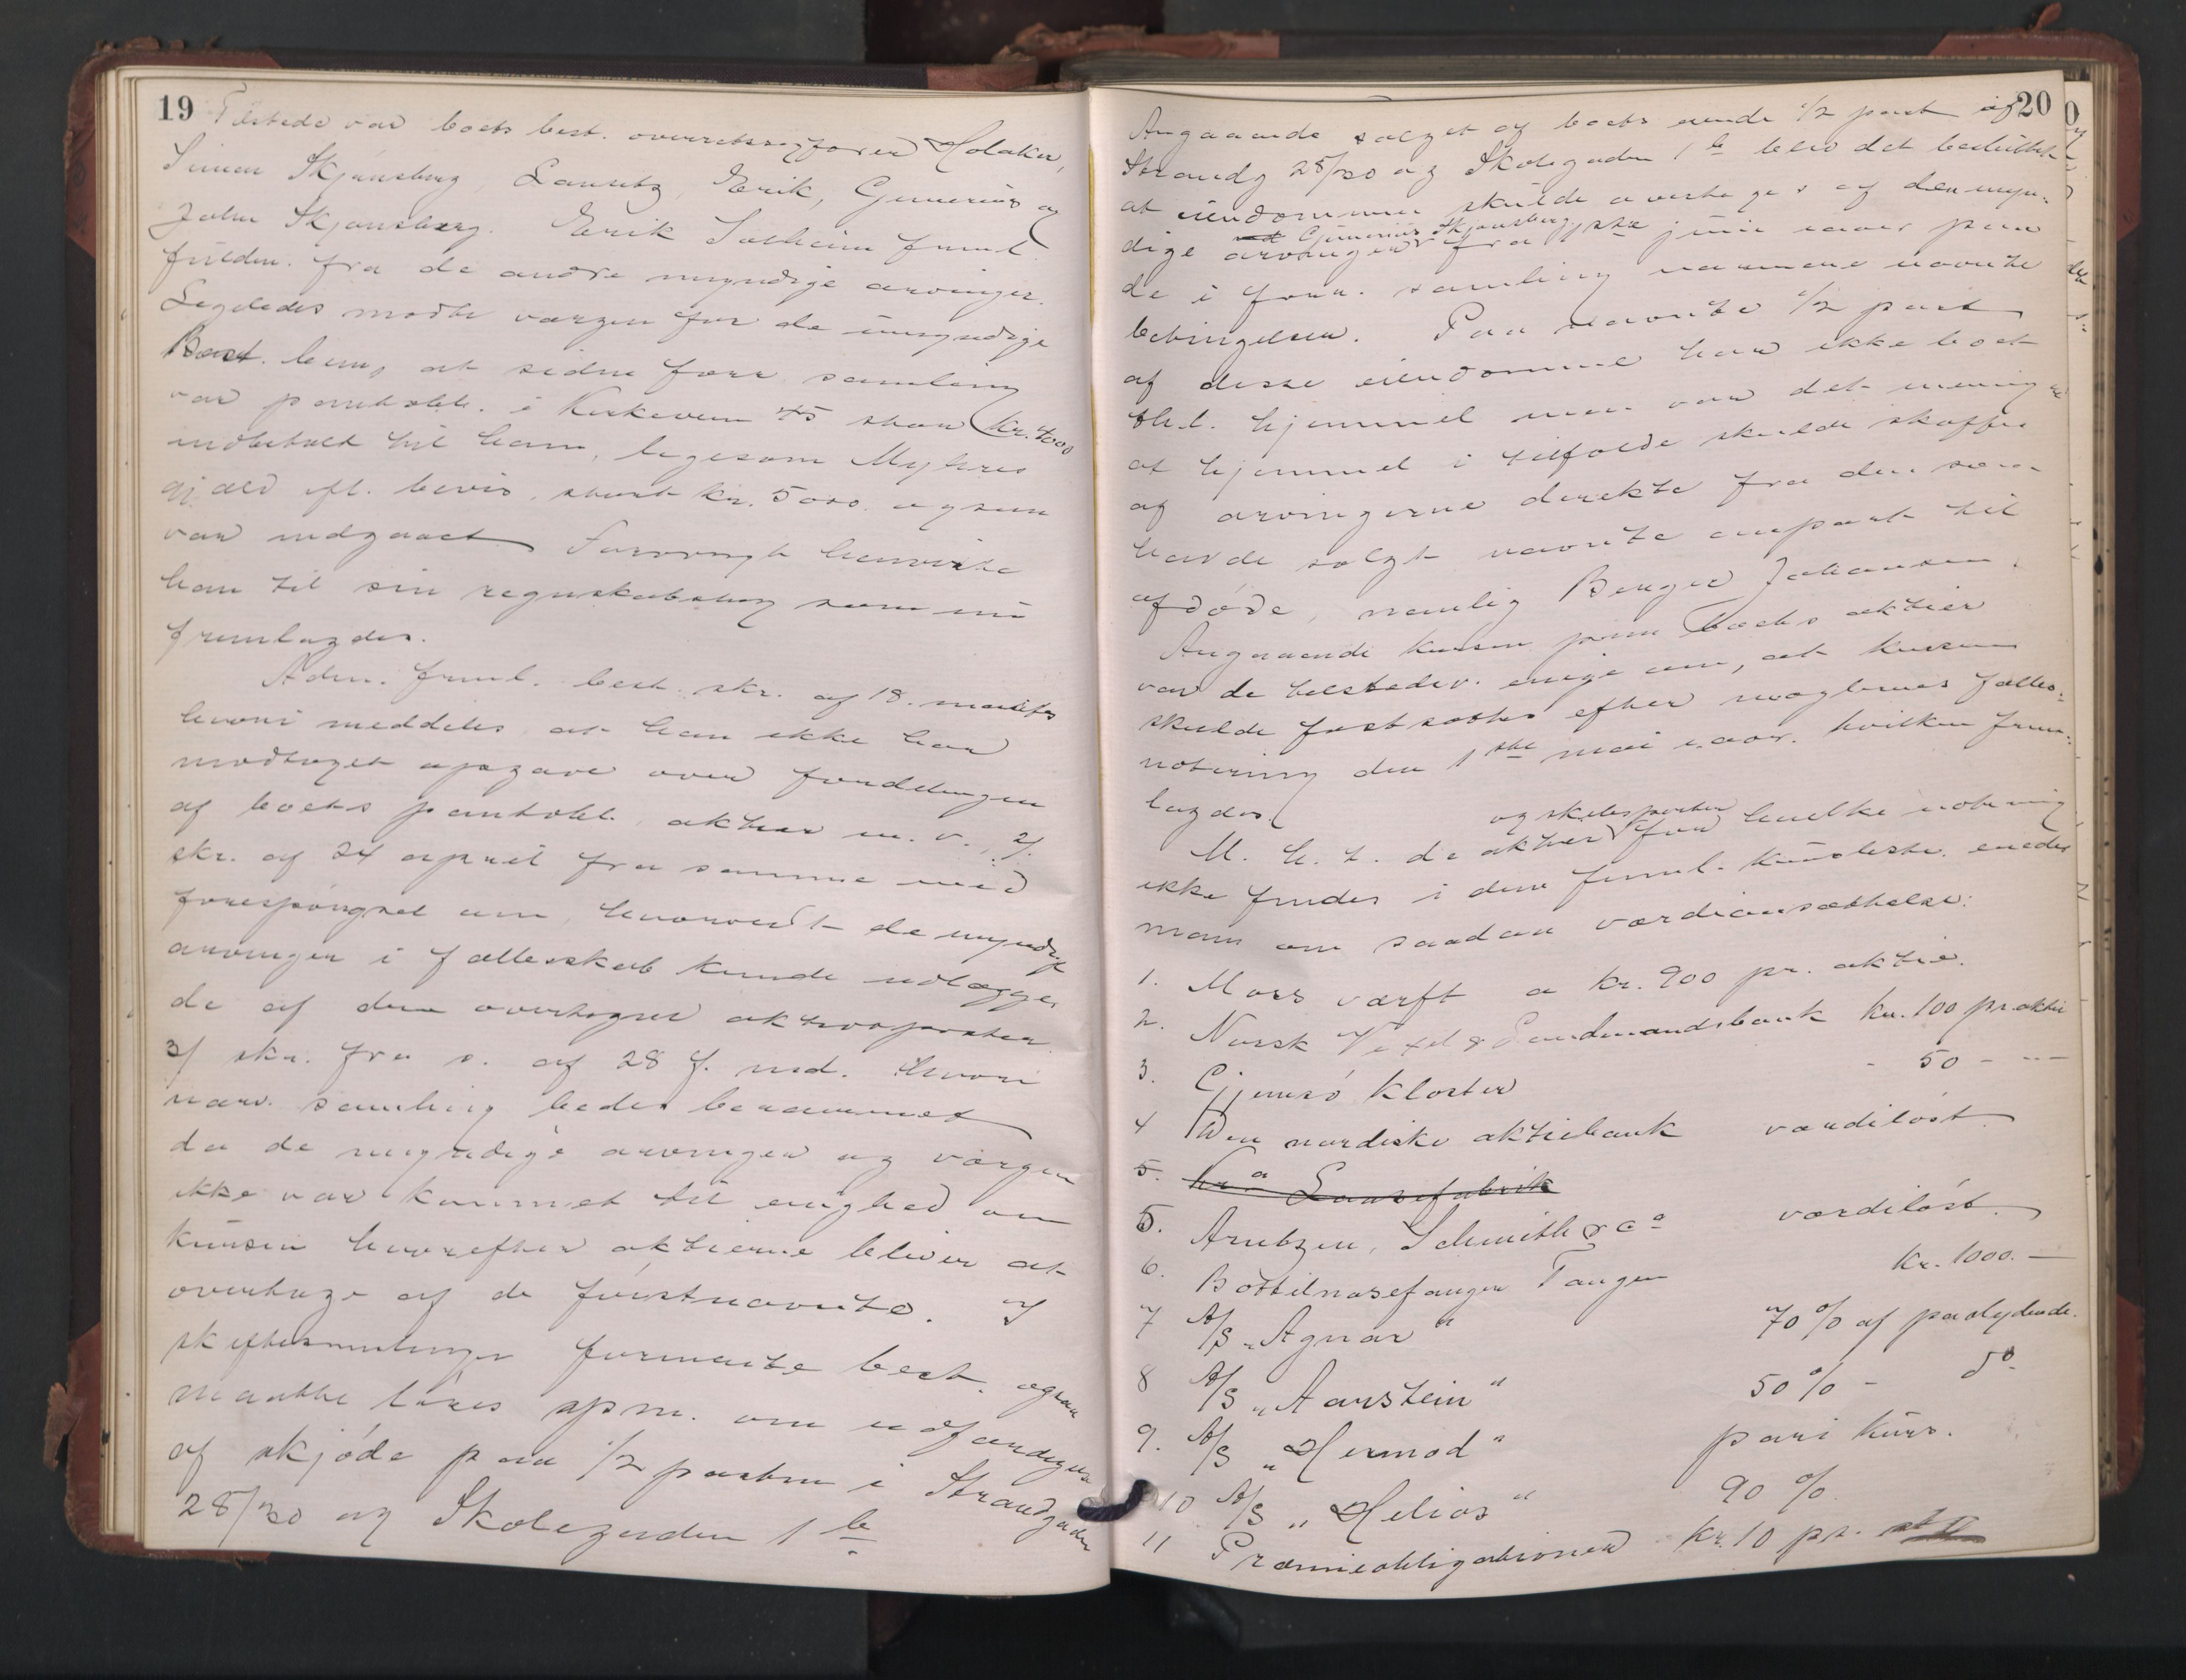 19
Tilstede var boets best. overretssagfører Holaker,
Simen Skjønsberg, Lauritz, Erik, Gunerius og
John Skjønsberg. Erik Solheim freml.
fuldm. fra de andre myndige arvinger.
Ligeledes mødte værgen for de umyndige
Best. bem, at sidne forr. samling
var pantobl. i Kirkeveien 45 stor kr. 4000
indbetalt til ham, ligesom Myhres
gjæld efl. bevis, stort kr. 5000 ogsaa
var indgaaet. Forøvrigt henviste
han til sin regnskabsbog som nu
fremlagdes.
Adm. freml. best. skr. af 18. marts
hvori meddeles at han ikke har
modtaget opgave over fordelingen
af boets pantobl. aktier m. v., 2/
skr. af 24 april fra samme med
forespørgsel om, hvorvidt de myndige
arvinger i fællesskab kunde udlægges
de af dem overtagne aktieposter
3/ skr. fra s. af 28 f. md. hvori
nærv. samling bedes berammet
da de myndige arvinger og værgen
ikke var kommet til enighed om
kursen hvorefter aktierne bliver at
overtage af de førstnævnte. I
skiftesamlingen formente best. ogsaa
maatte løses spm. om udfærdigelse
af skjøde paa 1/2 parten i Strandgaden
28/30 og Skolegaden 1 b
20
Angaaende salget af boets eiende 1/2 part af
Strandg 28/30 og Skolegaden 1 b blev det besluttet
at eiendommen skulde overtages af den myn-
Gunerius Skjønsberg
dige arvinger fra 1ste juni iaar paa
de i forr. samling nærmere nævnte
betingelser. Paa nævnte 1/2 part
af disse eiendomme har ikke boet
thl. hjemmel men var det mening
at hjemmel i tilfælde skulde skaffes
af arvingerne direkte fra den som
havde solgt nævnte anpart til
afdøde, nemlig Berger Johansen.
Angaaende kursen paa boets aktier
var de tilstedev. enige om, at kursen
skulde fastsættes efter mæglernes fælles-
notering den 1ste mai iaar. hvilken frem-
lagdes.
og skibsparter
M. h. t. de aktier for hvilke notering
ikke findes i den freml. kursliste. enedes
man om saadan værdiansættelse:
1. Moss værft a kr. 900 pr. aktie.
2. Norsk Vexel & Landmandsbank kr. 100 pr. aktie
3. Gjemsø Kloster - 50 - -
4 Den nordiske aktiebank værdiløst
5. Kra Laasefabrik
5. Arntzen, Schmith & Co værdiløst.
6. Bottilnosefanger Tangen kr. 1000.-
7 A/S "Agnar" 70% af paalydende.
8 A/S "Aarstein" 50% - do
9. A/S "Hermod" pari kurs.
10 A/S "Helios" 90 %
11 Præmieobligationer kr. 10 pr.